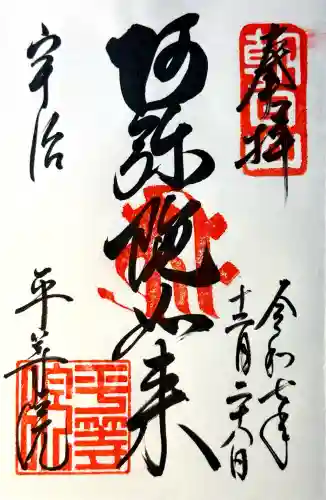 奉拝
令和七年
十二月二十八日
阿弥陀如来
宇治
平等院
平等院